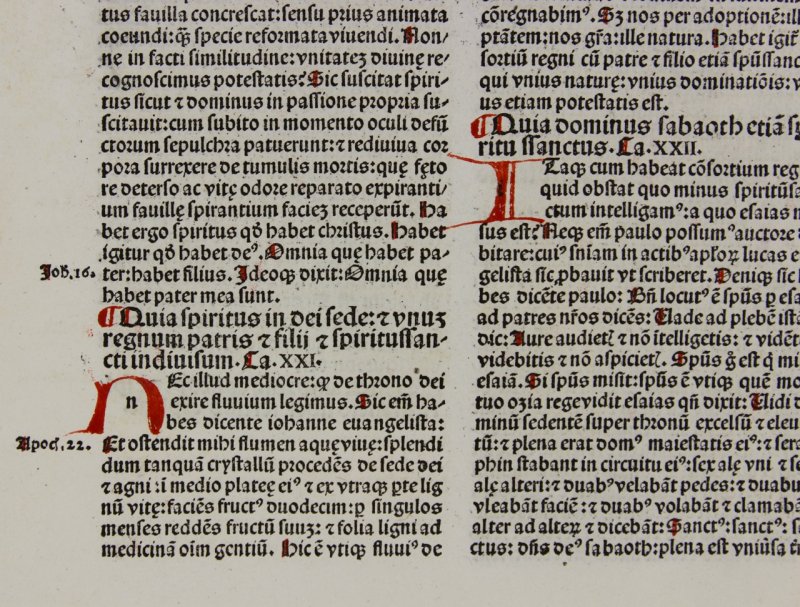 tus fauilla concrescat: sensu prius animata
coeundi: qȝ specie reformata viuendi. Non/
ne in facti similitudine: vnitateȝ diuinę re/
cognoscimus potestatis? Sic suscitat spiri/
tus sicut ⁊ dominus in passione propria su/
scitauit: cum subito in momento oculi defū
ctorum sepulchra patuerunt: ⁊ rediuiua cor
pora surrexere de tumulis mortis: quę fęto
re deterso ac vitę odore reparato expiranti/
um fauillę spirantium facieȝ receperūt. Ha
bet ergo spiritus qď habet christus. Habet
igitur qď habet deꝰ. Omnia quę habet pa/
Joh̄. 16. ter: habet filius. Ideoqȝ dixit: Omnia quę
habet pater mea sunt.
¶ Quia spiritus in dei sede: ⁊ vnuȝ
regnum patris ⁊ filij ⁊ spiritussan-
cti indiuisum. Ca. XXI.
n Ec illud mediocre: qꝫ de throno dei
exire fluuium legimus. Sic em̄ ha/
bes dicente iohanne euangelista:
Apoc̄. 22. Et ostendit mihi flumen aquę viuę: splendi
dum tanquā crystallū procedēs de sede dei
⁊ agni: ī medio plateę eiꝰ ⁊ ex vtraqȝ ꝑte lig
nū vitę: faciēs fructꝰ duodecim: ꝑ singulos
menses reddēs fructū suuȝ: ⁊ folia ligni ad
medicinā oīm gentiū. Hic ē vtiqȝ fluuiꝰ de
cōregnabimꝰ. Sȝ nos per adoptionē: ill
ptātem: nos grā: ille natura. Habet igit̄
sortiū regni cū patre ⁊ filio etiā spūssanc
qui vnius naturę: vnius dominatiōis: v
us etiam potestatis est.
¶ Quia dominus sabaoth etiā sp
ritu ssanctus. Ca. XXII.
I Taqȝ cum habeat cōsortium reg
quid obstat quo minus spiritūsa
ctum intelligamꝰ: a quo esaias m
sus est? Neqȝ em̄ paulo possumꝰ auctore d
bitare: cuiꝰ sn̄iam in actibꝰ apl'oꝝ lucas e
gelista sic ꝓbauit vt scriberet. Deniqȝ sic h
bes dicēte paulo: Bn̄ locutꝰ ē spūs ꝑ esa
ad patres nr̄os dicēs: Uade ad plebē istā
dic: Aure audietꝭ ⁊ nō ītelligetis: ⁊ vidēt
videbitis ⁊ nō aspicietꝭ. Spūs ḡ est q̇ mi
esaiā. Si spūs misit: spūs ē vtiqȝ quē mo
tuo ozia regevidit esaias qn̄ dixit: Uidi d
minū sedentē super thronū excelsū ⁊ eleu
tū: ⁊ plena erat domꝰ maiestatis eiꝰ: ⁊ sera
phin stabant in circuitu eiꝰ: sex alę vni ⁊ se
alę alteri: ⁊ duabꝰ velabāt pedes: ⁊ duabu
vleabāt faciē: ⁊ duabꝰ volabāt ⁊ clamabā
alter ad alteꝝ ⁊ dicebāt: Sanctꝰ: sanctꝰ: sa
ctus: dn̄s deꝰ sabaoth: plena est vniūsa t̄r